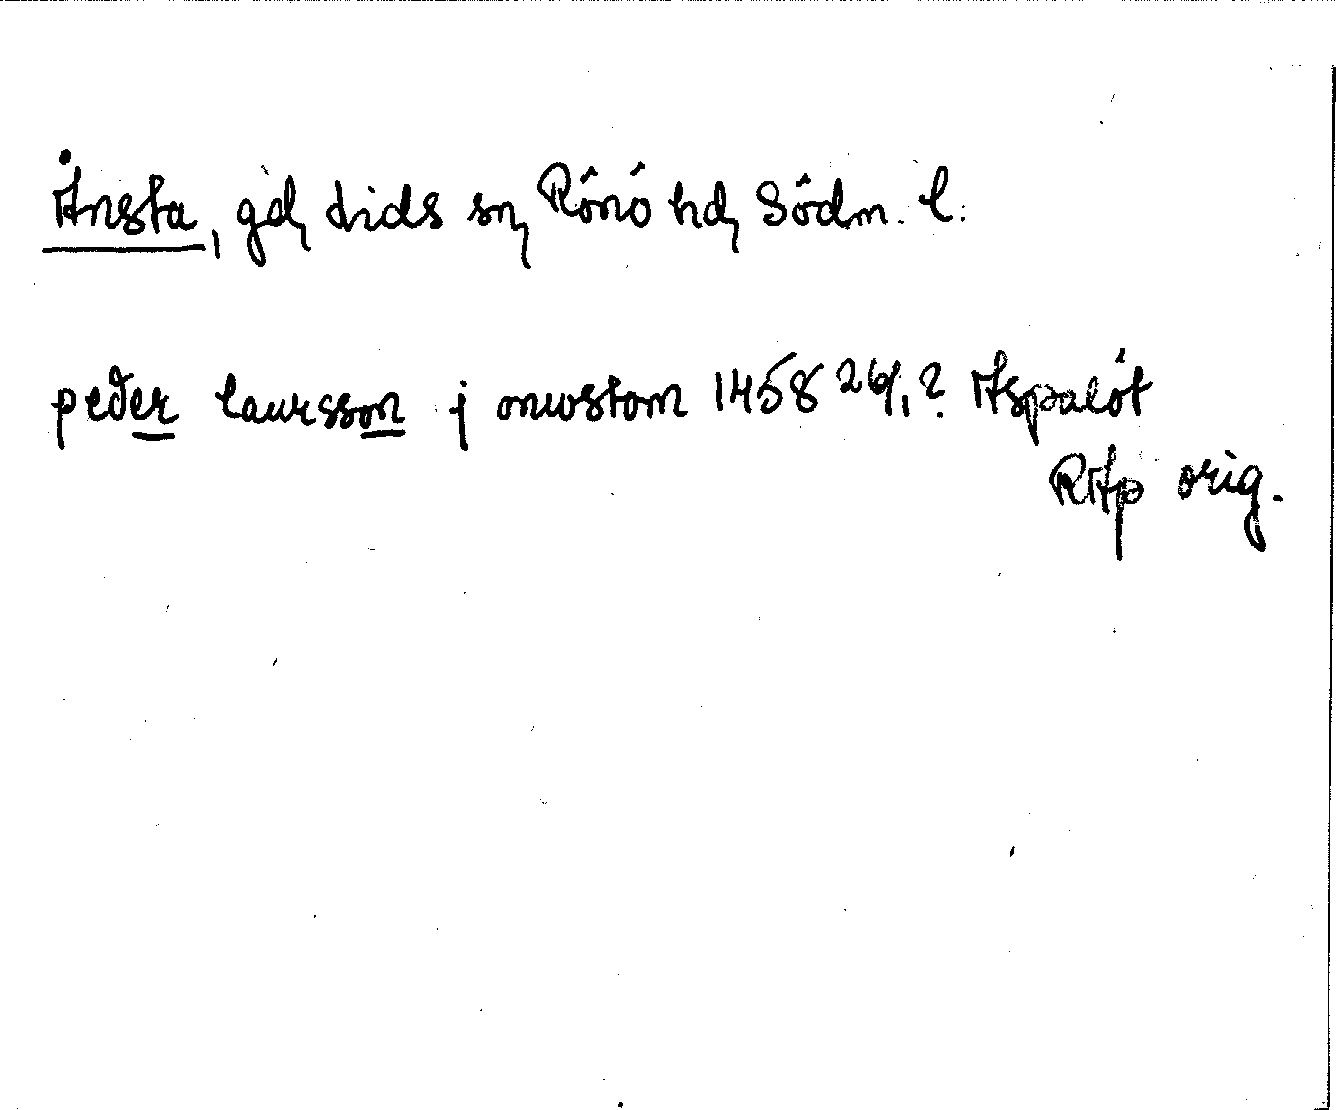 Ånsta, gd, Lids sn, Rönö hd, Södm. l.
peder laursson j onwstom 1458 26/1? Aspalöt
RAp orig.